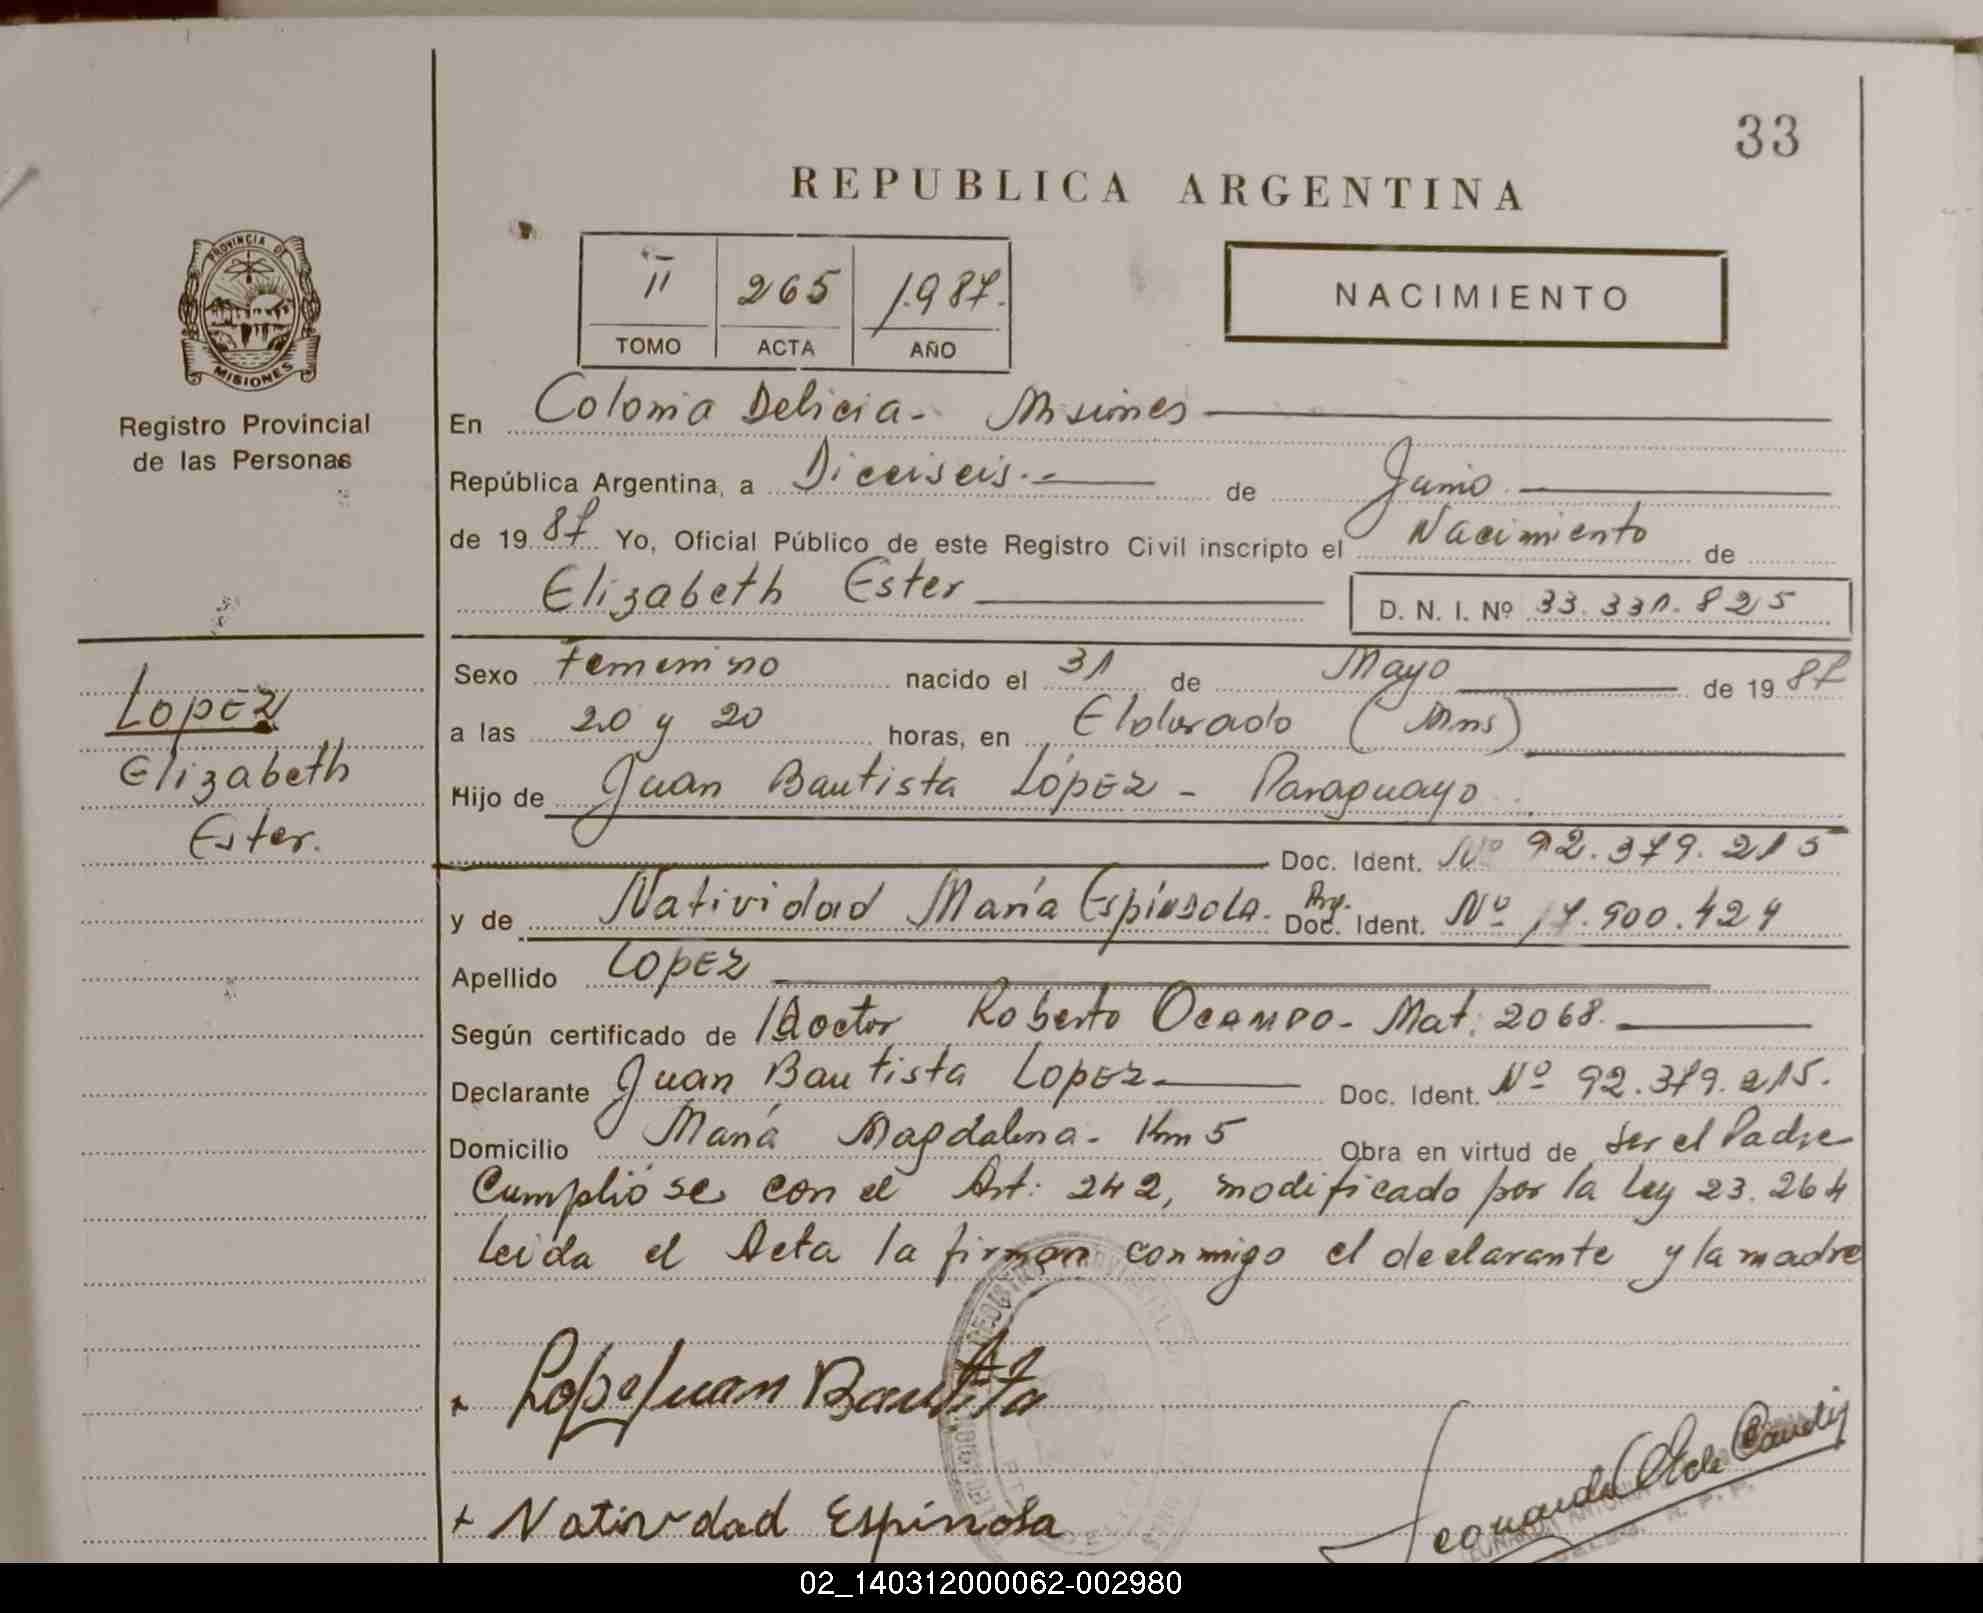 33
REPUBLICA ARGENTINA
PROVINCIA DE
MISIONES
II 265 1.987.
TOMO ACTA AÑO
NACIMIENTO
Registro Provincial
de las Personas
En Colonia Delicia - Misiones
República Argentina, a Dieciseis.- de Junio
de 19 87 Yo, Oficial Público de este Registro Civil inscripto el Nacimiento de
Elizabeth Ester D. N. I. Nº 33.331.825
Lopez
Elizabeth
Ester.
Sexo Femenino nacido el 31 de Mayo de 19 87
a las 20 y 20 horas, en Eldorado (Mns)
Hijo de Juan Bautista López - Paraguayo
Doc. Ident. Nº 92.379.215
y de Natividad María Espínsola. Arg. Doc. Ident. Nº 17.900.424
Apellido Lopez
Según certificado de Doctor Roberto Ocampo - Mat. 2068.
Declarante Juan Bautista Lopez Doc. Ident. Nº 92.379.215.
Domicilio María Magdalena - Km 5 Obra en virtud de ser el Padre
Cumplióse con el Art: 242, modificado por la Ley 23.264
leída el Acta la firman conmigo el declarante y la madre
Lope Juan Bautita
+ Natividad Espínola
02_140312000062-002980